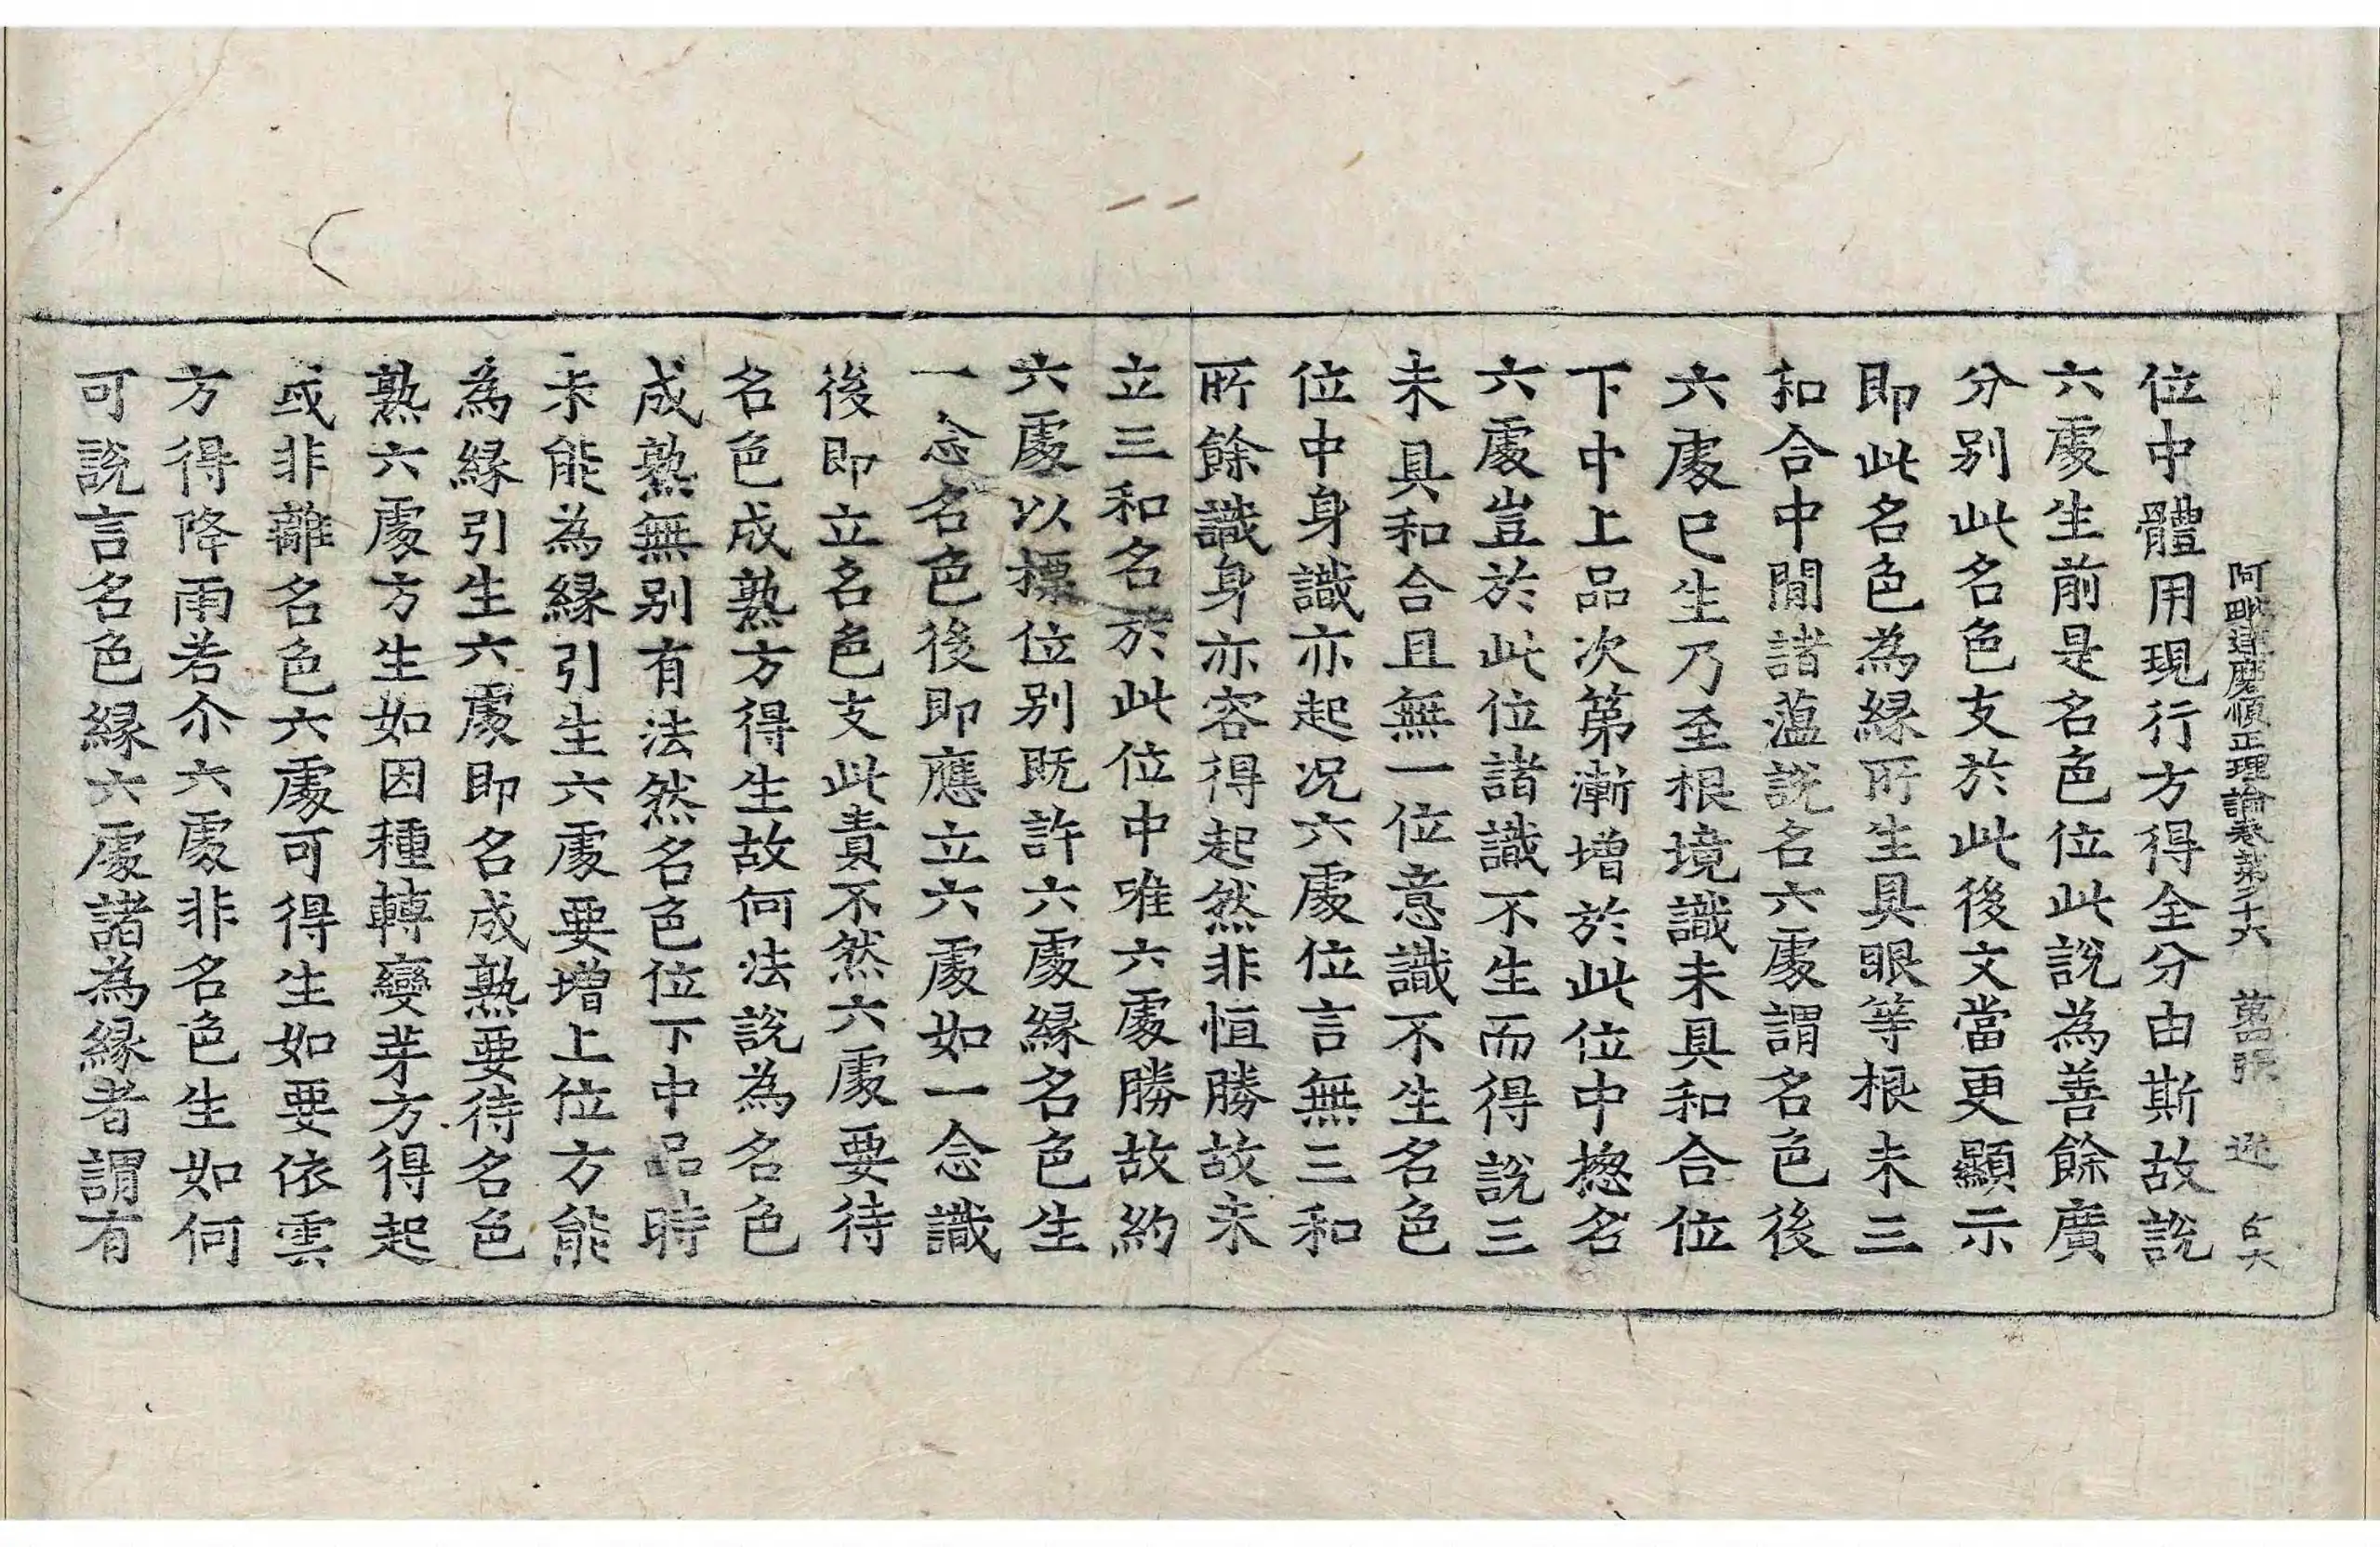 阿毗達磨順正理論卷第二十六 萬 張 逰
位中體用現行方得全分由斯故說
六處生前是名色位此說為善餘廣
分別此名色支於此後文當更顯示
即此名色為縁所生具眼等根未三
和合中間諸薀說名六處謂名色後
六處已生乃至根境識未具和合位
下中上品次第漸增於此位中揔名
六處豈於此位諸識不生而得說三
未具和合且無一位意識不生名色
位中身識亦起况六處位言無三和
所餘識身亦容得起然非恒勝故未
立三和名於此位中唯六處勝故約
六處以摽位别既許六處縁名色生
一念名色後即應立六處如一念識
後即立名色支此責不然六處要待
名色成熟方得生故何法說為名色
成熟無别有法然名色位下中品時
未能為縁引生六處要增上位方能
為縁引生六處即名成熟要待名色
熟六處方生如因種轉變芽方得起
或非離名色六處可得生如要依雲
方得降雨若尒六處非名色生如何
可說言名色縁六處諸為縁者謂有